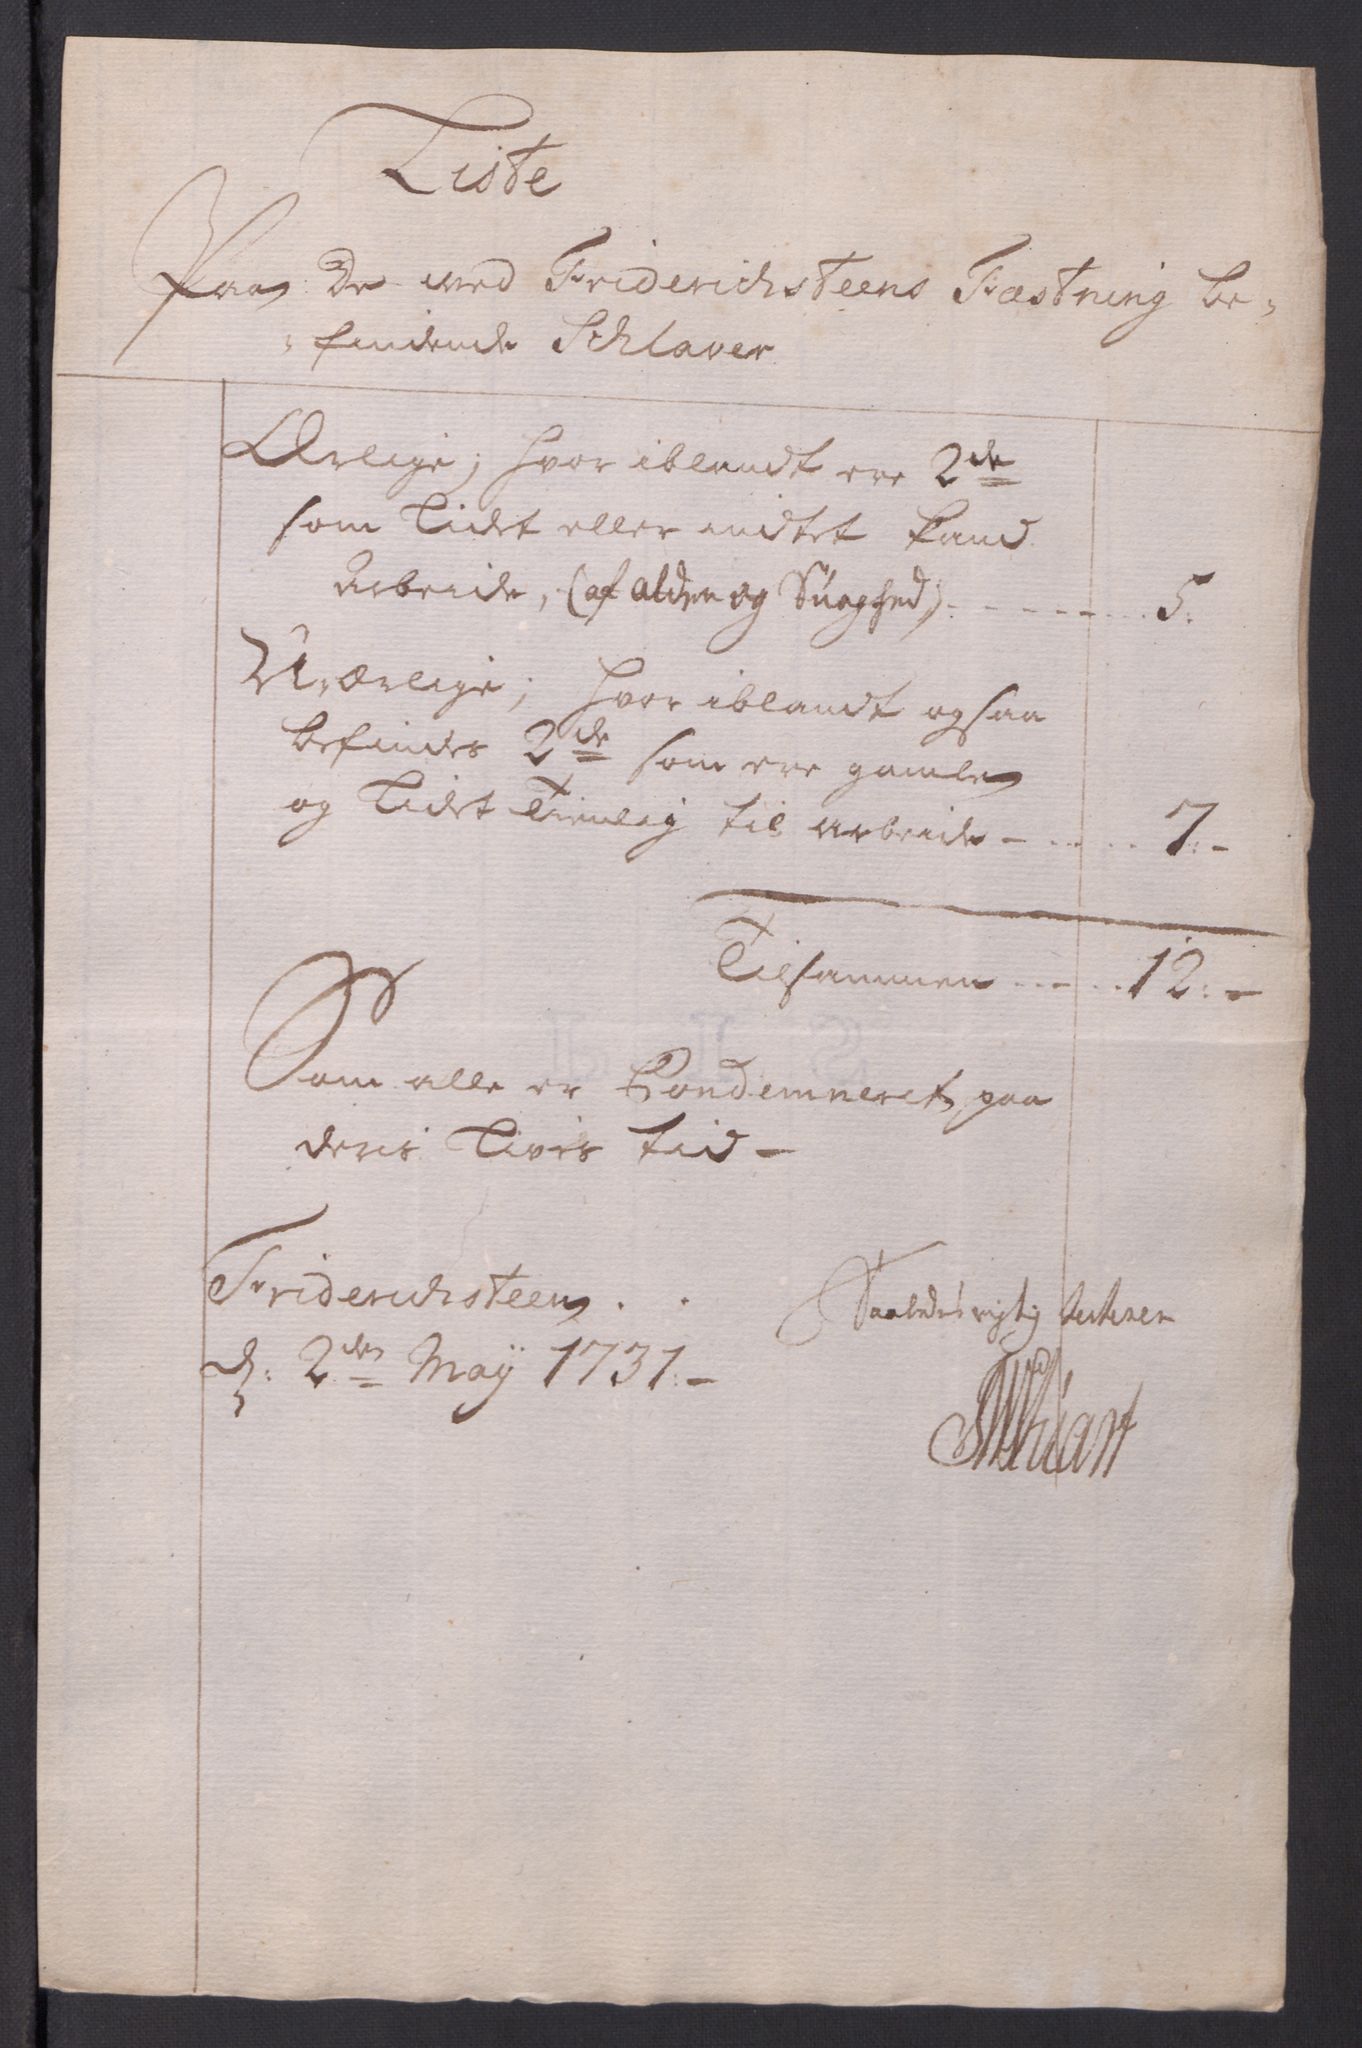 Liste
Paa De ved Friderichsteens Fæstning be-
findende Schlaver
Ærlige; hvor iblandt ere 2de
som Lidet eller indtet kand
Arbeide, (af alder og Suaghed) 5.
U-ærlige; hvor iblandt ogsaa
befindes 2de som ere gamle
og Lidet Tienlig til arbeide 7.
Tilsammen 12.
Som alle er Condemneret paa
deris Livs tid
Friderichsteen
d. 2den Maÿ 1731.
Saaledes rigtig